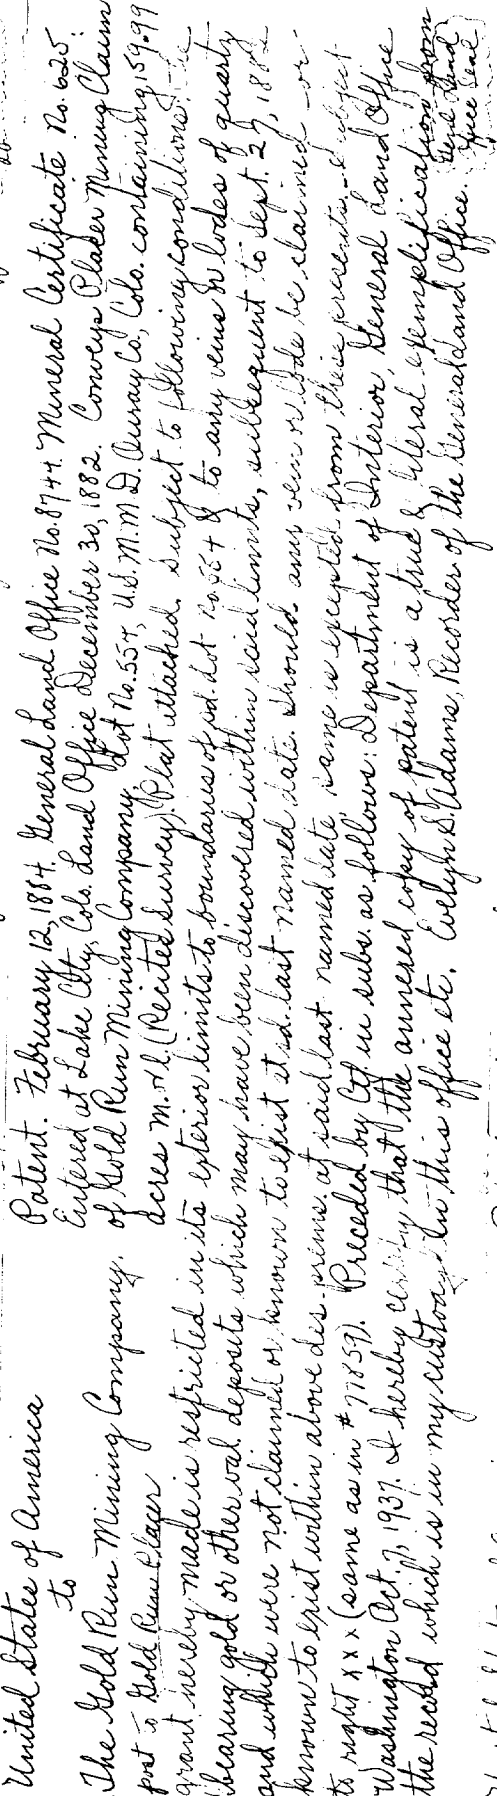 United States of America
to
The Gold Run Mining Company.
post to Gold Run Placer
Patent. February 12, 1884. General Land Office No. 8744. Mineral Certificate No. 625:
Entered at Lake City, Colo. Land Office December 30, 1882. Conveys Placer Mining Claim
of Gold Run Mining Company, Lot No. 554, U.S. M.M D. Ouray Co., Colo. containing 159.99
acres m. or l. (Recited Survey) Plat attached. Subject to following conditions: The
grant hereby made is restricted in its exterior limits to boundaries of sd. Lot No. 554 & to any veins or lodes of quartz
bearing gold or other val. deposits which may have been discovered within said limits, subsequent to Sept. 27, 1882
and which were not claimed or known to exist at sd. last named date. Should any vein or lode be claimed or
known to exist within above des. prems. at said last named date same is excepted from these presents. Subject
to right x x x (same as in # 77859). Preceded by Ctf in subs. as follows: Department of Interior, General Land Office
Washington Oct. 7, 1937. I hereby certify that the annexed copy of patent is a true & literal exemplification from
the record which is in my custody in this office etc. Evelyn S. Adams, Recorder of the General Land Office.
Genl Land
Office Seal